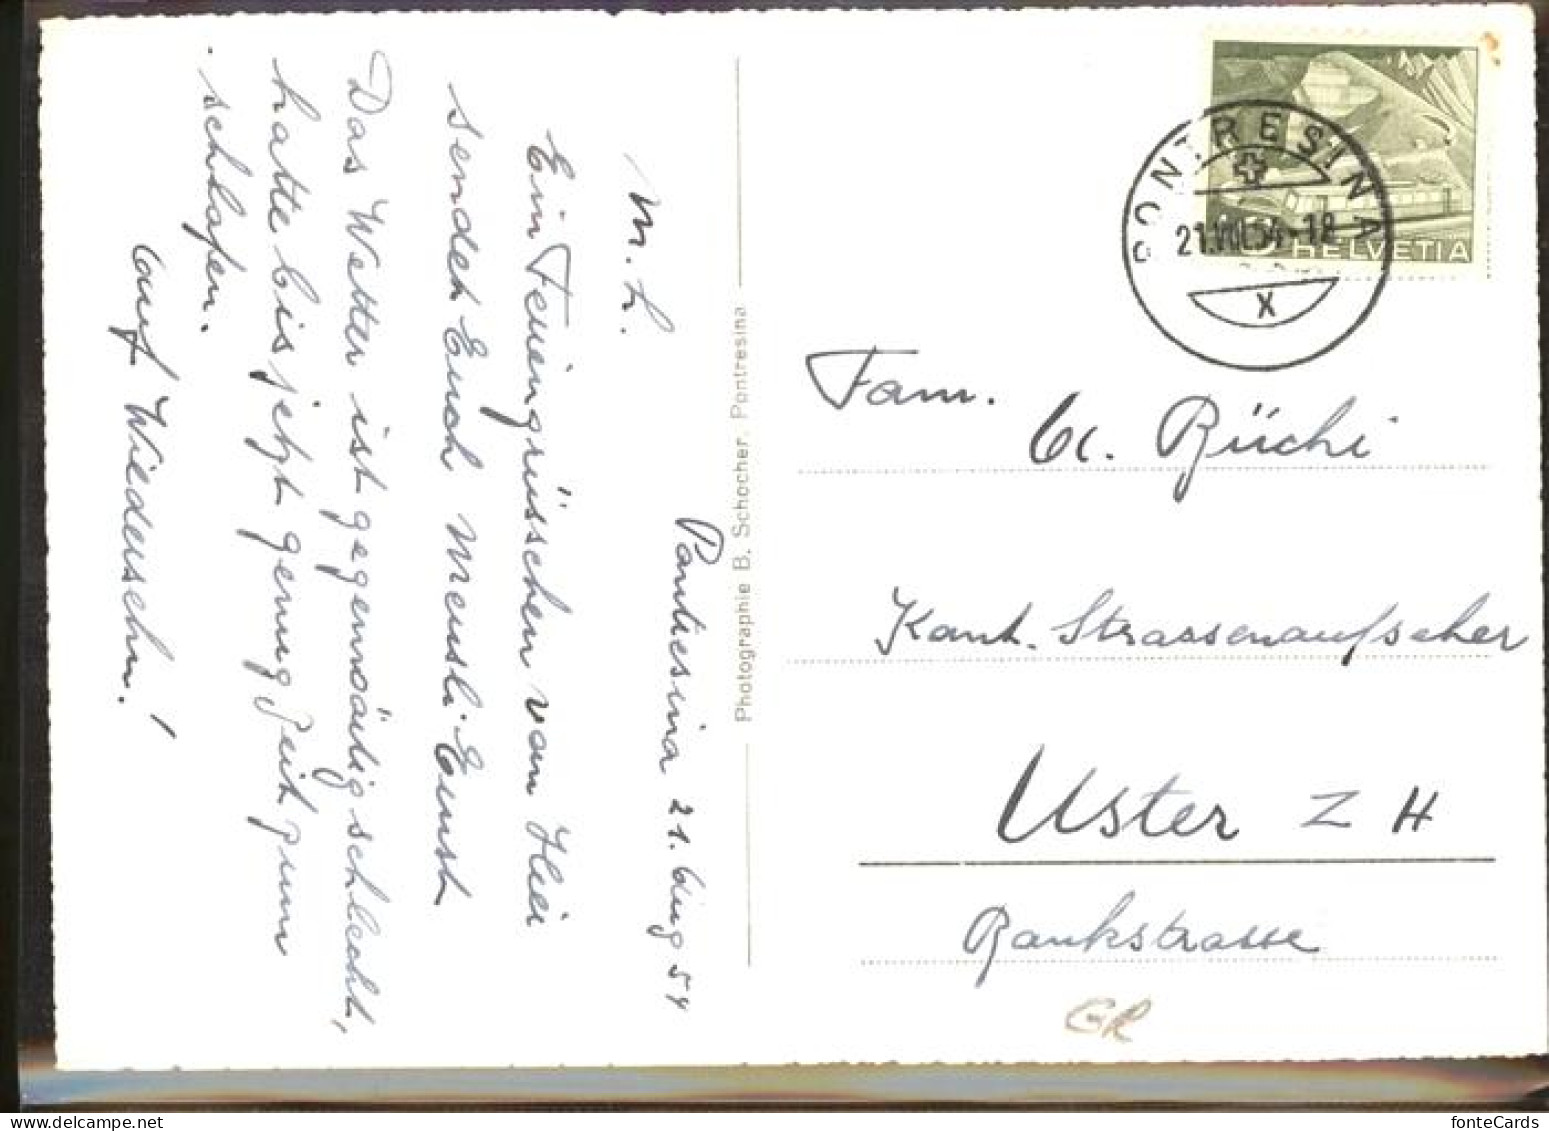 Pontresina 21. Aug 54
M. L.
Ein Feriengrüsschen vom Heiri
sendet Euch Meusli-Ernst
Das Wetter ist gegenwärtig schlecht,
hatte bis jetzt genug Zeit zum
schlafen.
Auf Wiedersehn!
Photographie B. Schocher, Pontresina
PONTRESINA
21.VIII.54-18
X
5 HELVETIA
Fam.
A. Büchi
Kant. Strassenaufseher
Uster ZH
Bankstrasse
GR
fonteCards